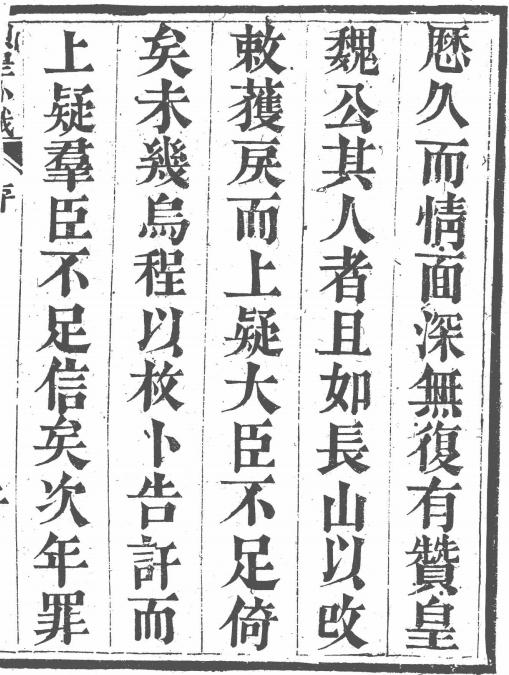 歷久而情面深無復有贊皇
魏公其人者且如長山以改
敕蒦戾而上疑大臣不足倚
矣未幾烏程以枚卜告訐而
上疑羣臣不足信矣次年罪
序